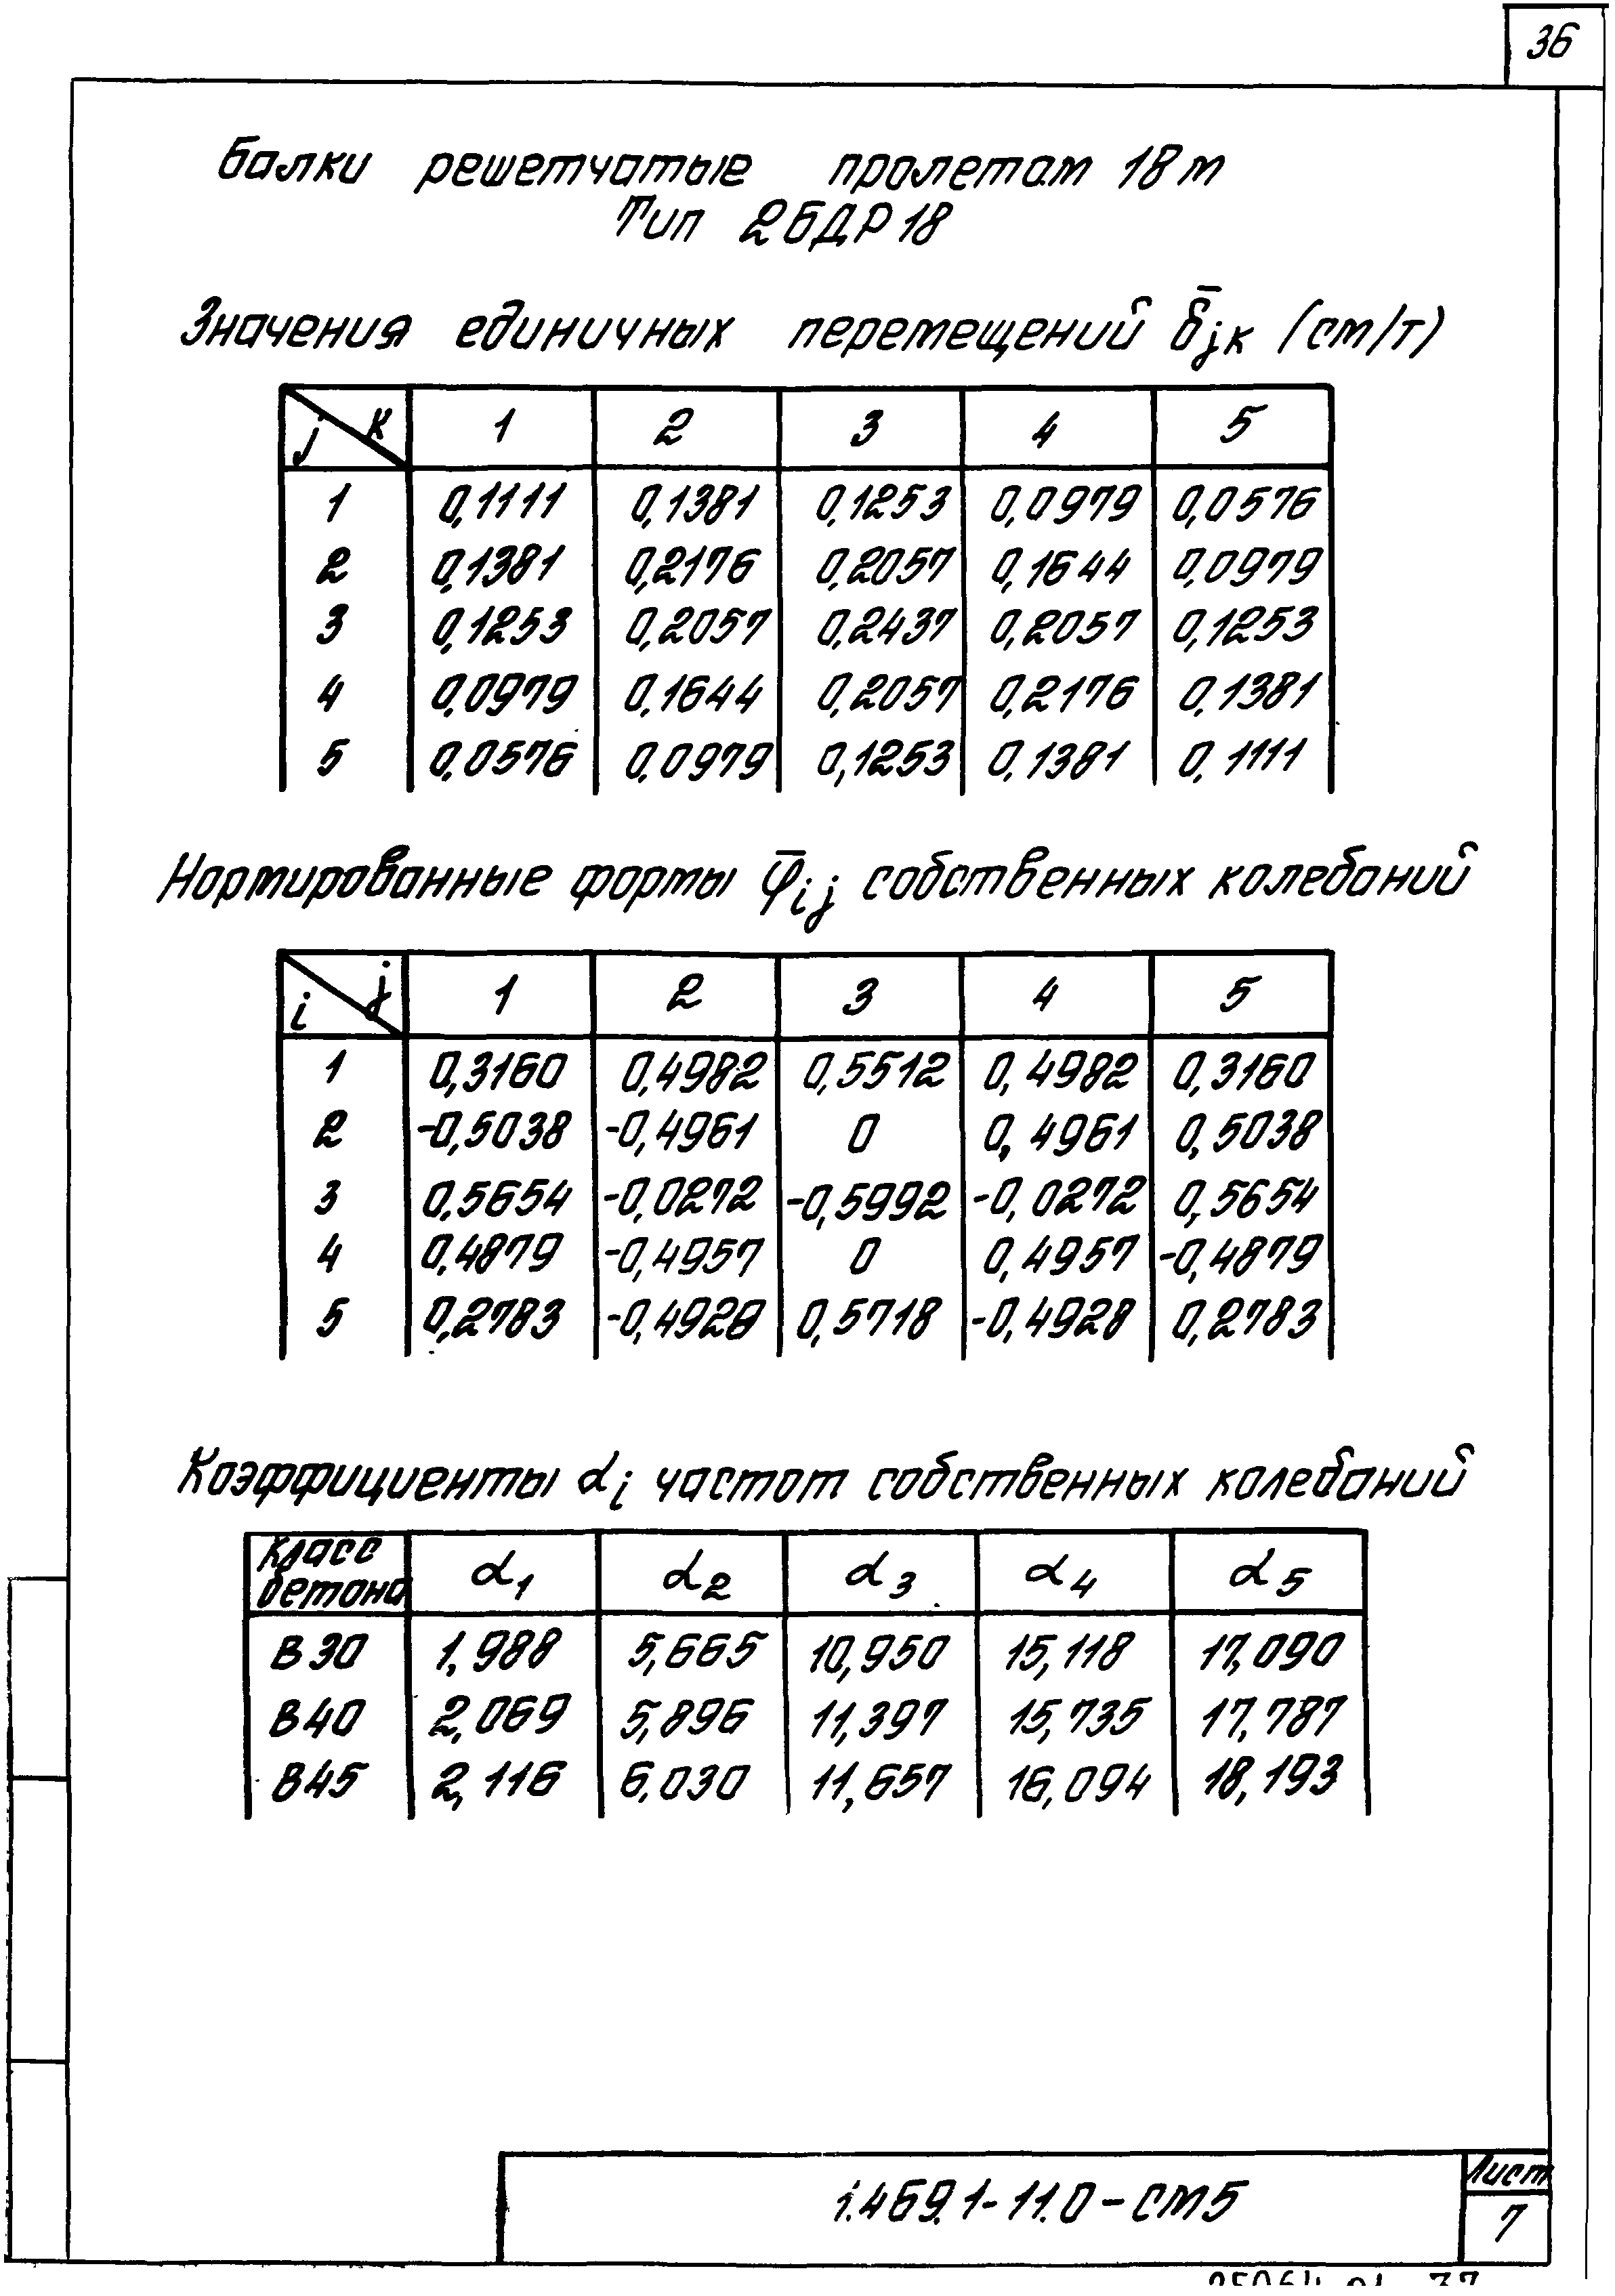 36
Балки решетчатые пролетам 18 м
Тип 2БДР18
Значения единичных перемещений δ̄jк (см/т)
j к 1 2 3 4 5
1 0,1111 0,1381 0,1253 0,0979 0,0576
2 0,1381 0,2176 0,2057 0,1644 0,0979
3 0,1253 0,2057 0,2437 0,2057 0,1253
4 0,0979 0,1644 0,2057 0,2176 0,1381
5 0,0576 0,0979 0,1253 0,1381 0,1111
Нормированные формы φ̄ij собственных колебаний
i j 1 2 3 4 5
1 0,3160 0,4982 0,5512 0,4982 0,3160
2 -0,5038 -0,4961 0 0,4961 0,5038
3 0,5654 -0,0272 -0,5992 -0,0272 0,5654
4 0,4879 -0,4957 0 0,4957 -0,4879
5 0,2783 -0,4928 0,5718 -0,4928 0,2783
Коэффициенты αi частот собственных колебаний
Класс бетона α1 α2 α3 α4 α5
В30 1,988 5,665 10,950 15,118 17,090
В40 2,069 5,896 11,397 15,735 17,787
В45 2,116 6,030 11,657 16,094 18,193
1.469.1-11.0-СМ5
Лист
7